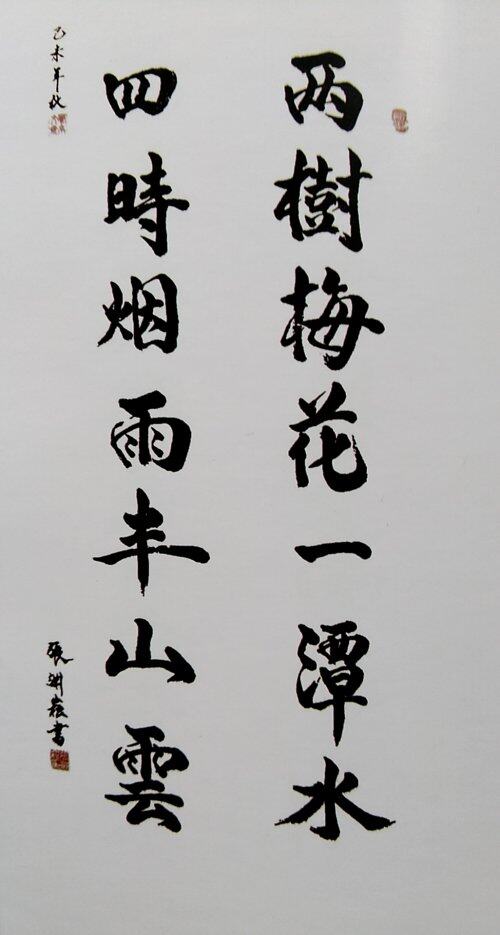 两樹梅花一潭水
四時烟雨丰山雲
乙未年秋
張淵嵗書